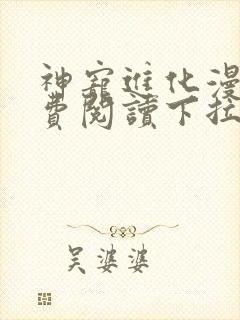 神寵進化漫
費閱讀下拉
吴婆婆